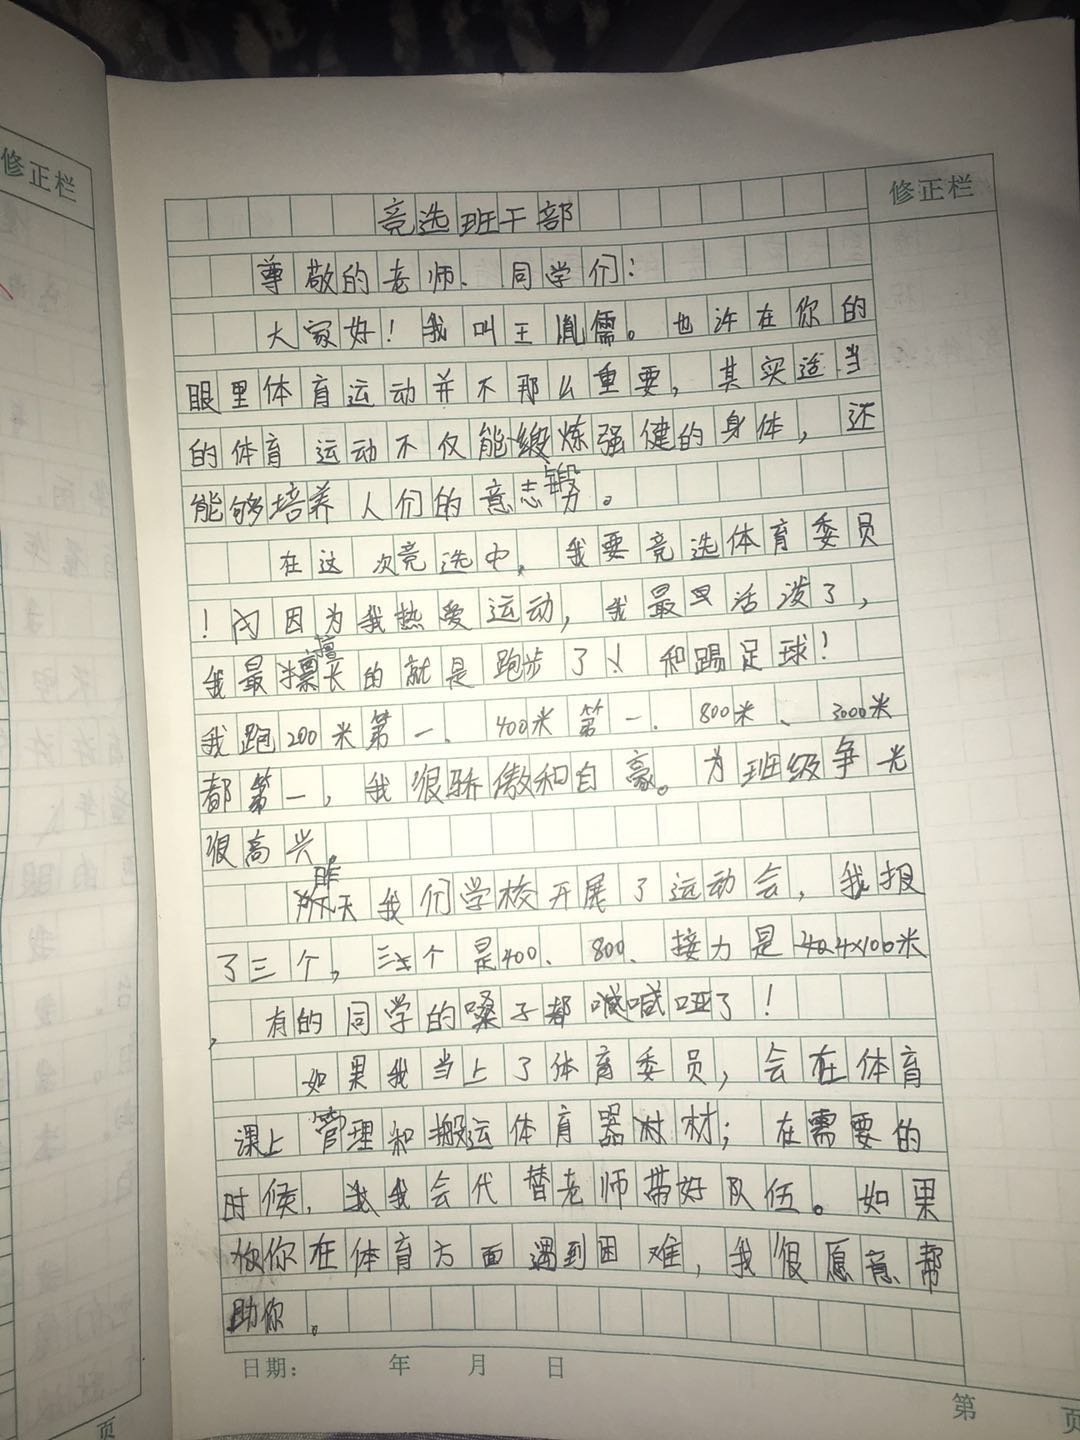 修正栏
修正栏
竞选班干部
尊敬的老师、同学们:
大家好!我叫王胤儒。也许在你的
眼里体育运动并不那么重要,其实适当
的体育运动不仅能缎炼强健的身体,还
锻
能够培养人们的意志力。
在这次竞选中,我要竞选体育委员
!因为我热爱运动,我最早活泼了,
擅
我最长的就是跑步了!和踢足球!
我跑200米第一、400米第一、800米、3000米
都第一,我很骄傲和自豪。为班级争光
很高兴。
昨
天我们学校开展了运动会,我报
了三个,三个是400、800、接力是4×100米
,有的同学的嗓子都喊喊哑了!
如果我当上了体育委员,会在体育
课上管理和搬运体育器材;在需要的
时候,我会代替老师带好队伍。如果
你在体育方面遇到困难,我很愿意帮
助你。
日期: 年 月 日
第 页
页